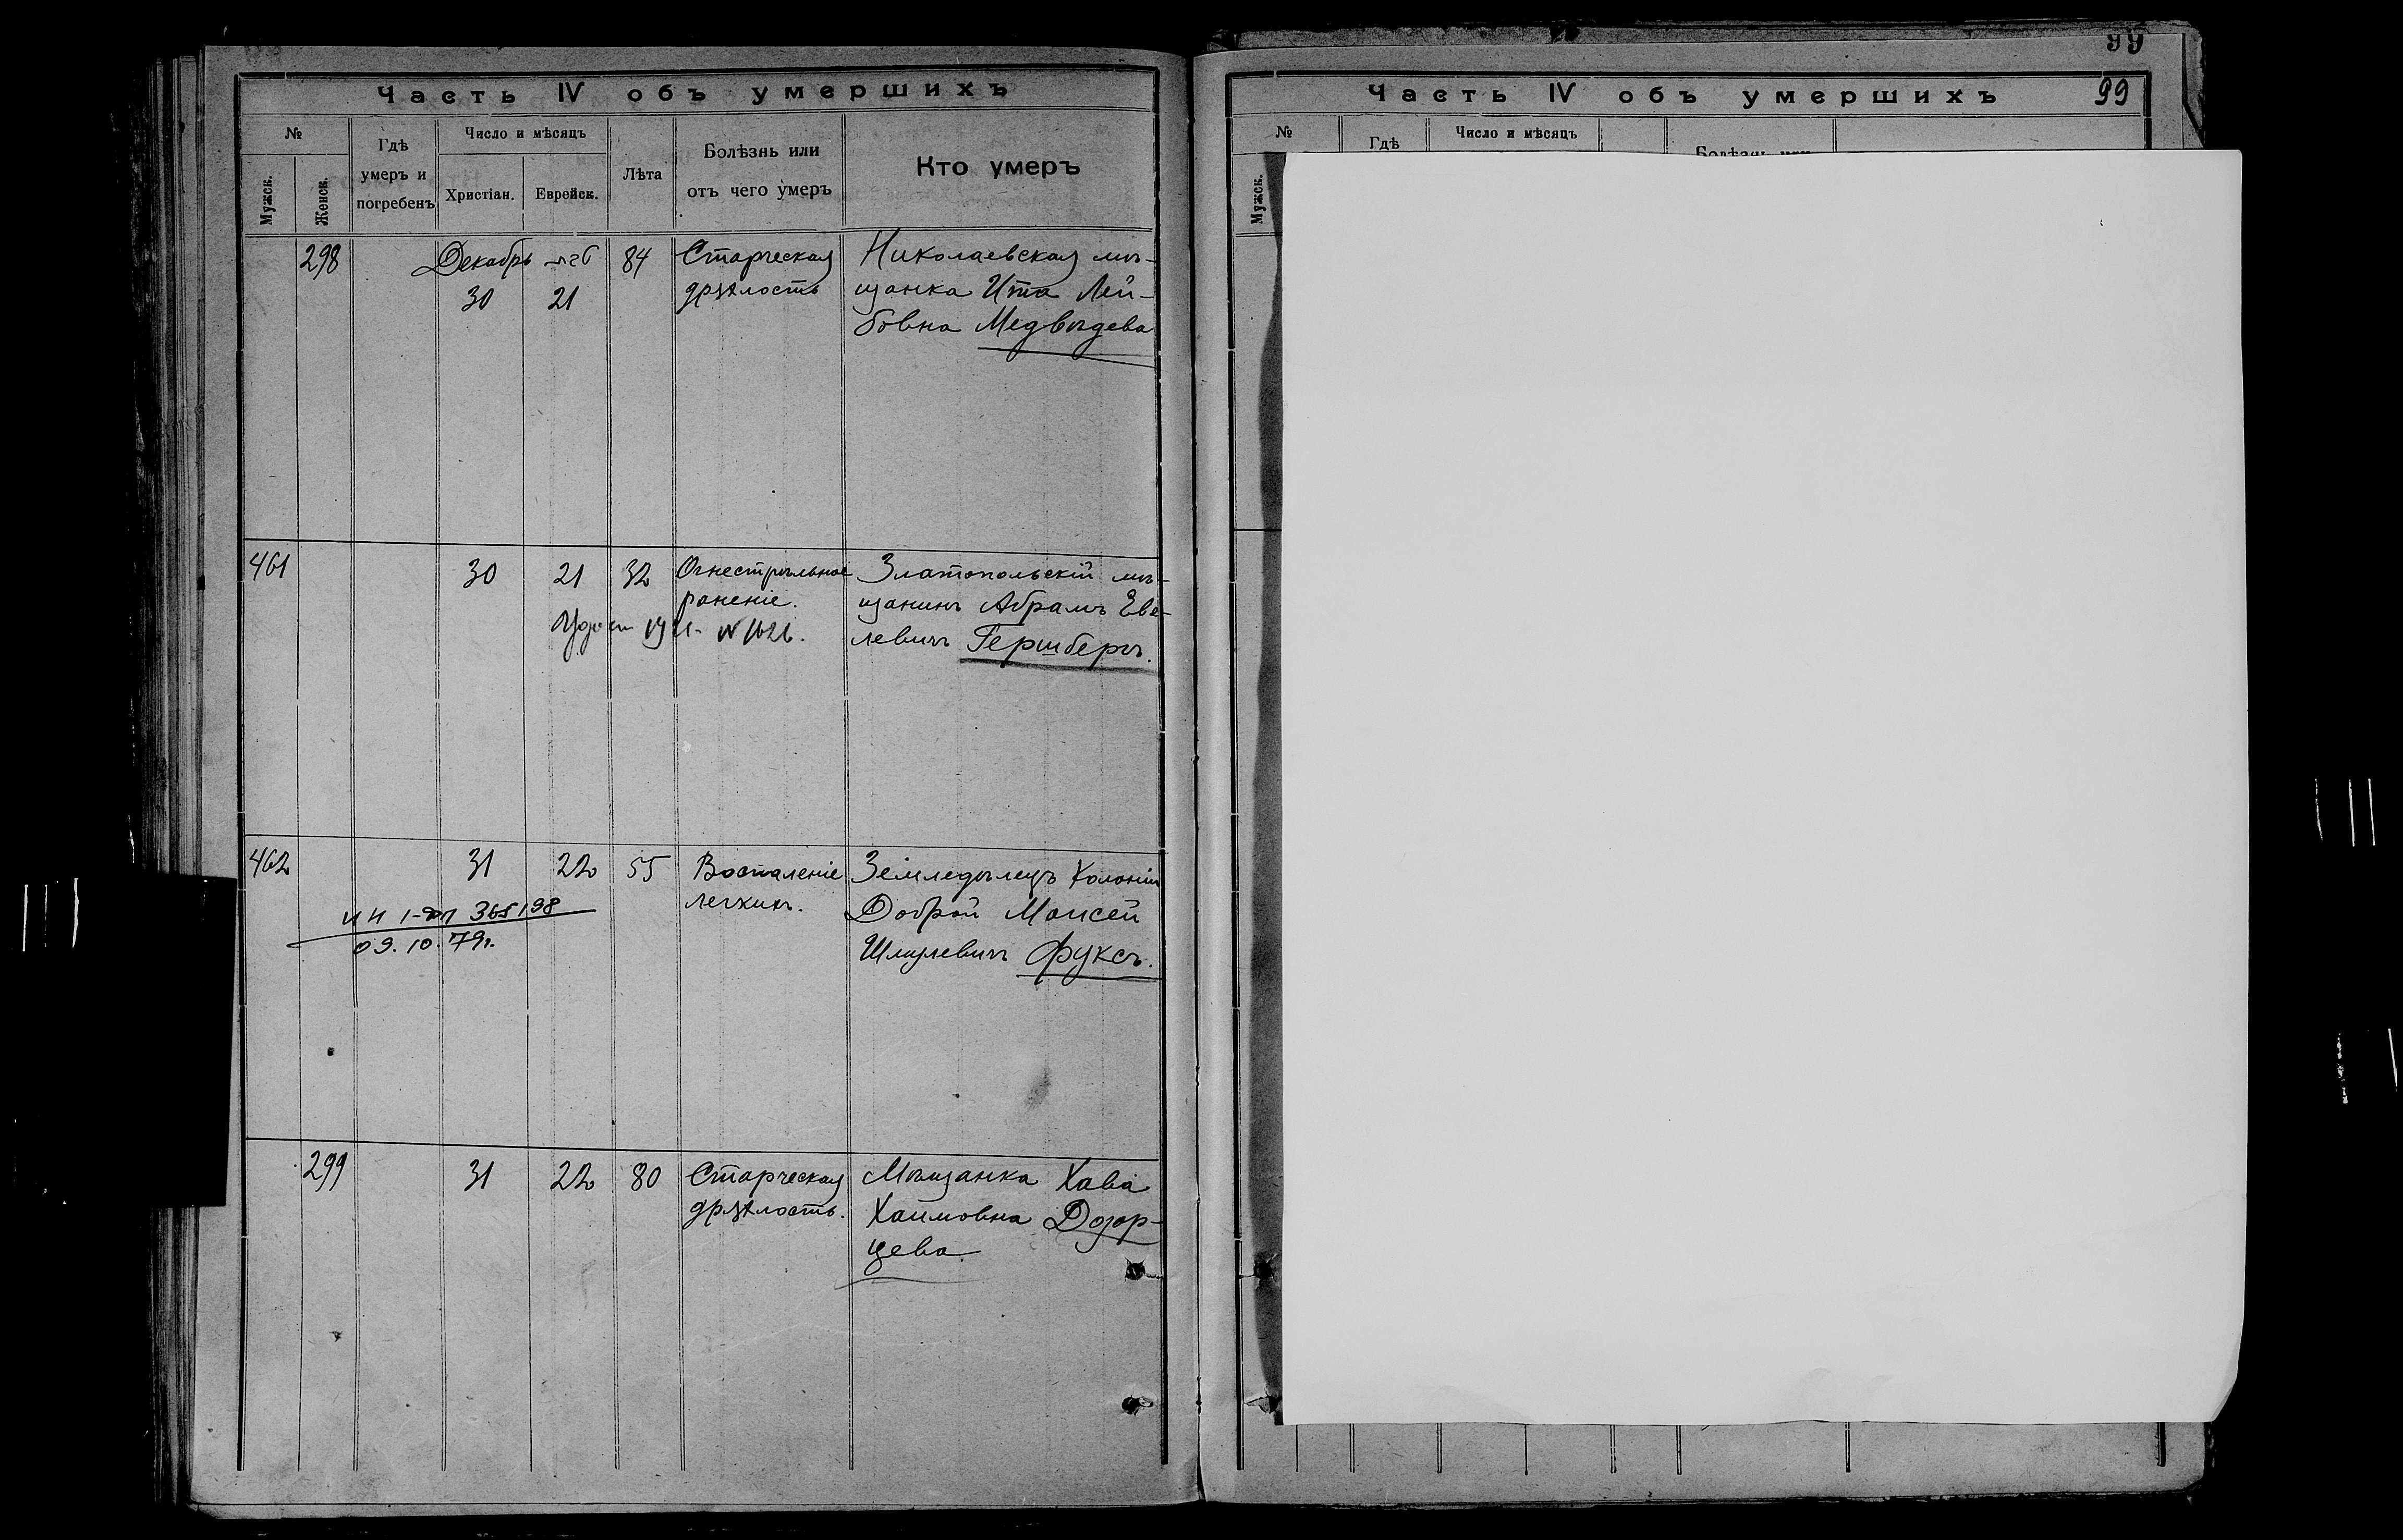 Часть IV объ умершихъ
№
Мужск.
Женск.
Гдѣ
умеръ и
погребенъ
Число и мѣсяцъ
Христіан.
Еврейск.
Лѣта
Болѣзнь или
отъ чего умеръ
Кто умеръ
298
Декабрь
30
21
84
Старческая
дряхлость
Николаевская мѣ-
щанка Ита Лей-
бовна Медвѣдева
461
30
21
32
Огнестрѣльное
раненіе.
Златопольскій мѣ-
щанинъ Абрамъ Еве-
левичъ Гершбергъ.
462
31
22
55
Воспаленіе
легкихъ.
Земледѣлецъ Колоніи
Доброй Моисей
Шмулевичъ Фуксъ.
09.10.79г.
299
31
22
80
Старческая
дряхлость.
Мѣщанка Хава
Хаимовна Дозор-
цева.
99
Часть IV объ умершихъ
99
№
Мужск.
Гдѣ
Число и мѣсяцъ